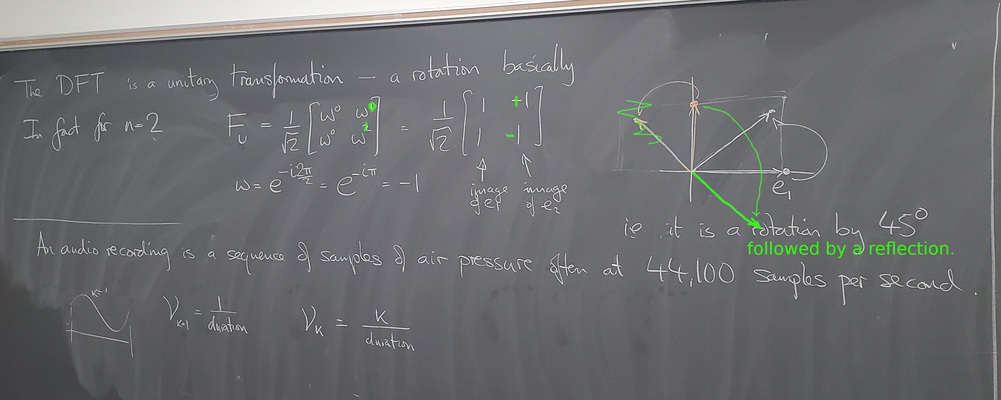 The DFT is a unitary transformation — a rotation basically
In fact for n=2 F_υ = 1/√2 [ω⁰ ω⁰ ω⁰ ω¹] = 1/√2 [1 +1 1 -1]
ω = e^(-i2π/2) = e^(-iπ) = -1
image of e₁ image of e₂
e₁
ie it is a rotation by 45°
followed by a reflection.
An audio recording is a sequence of samples of air pressure often at 44,100 samples per second.
K=1
ν_K=1 = 1/duration ν_K = K/duration